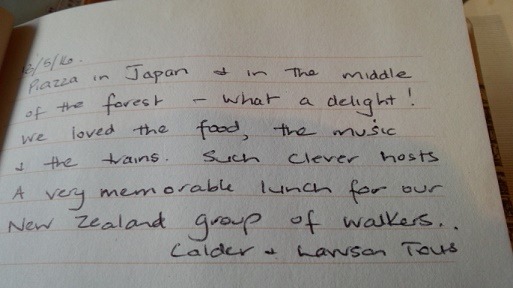 /5/16.
Piazza in Japan & in the middle
of the forest - what a delight!
We loved the food, the music
& the trains. Such clever hosts
A very memorable lunch for our
New Zealand group of walkers..
Calder & Lawson Tours